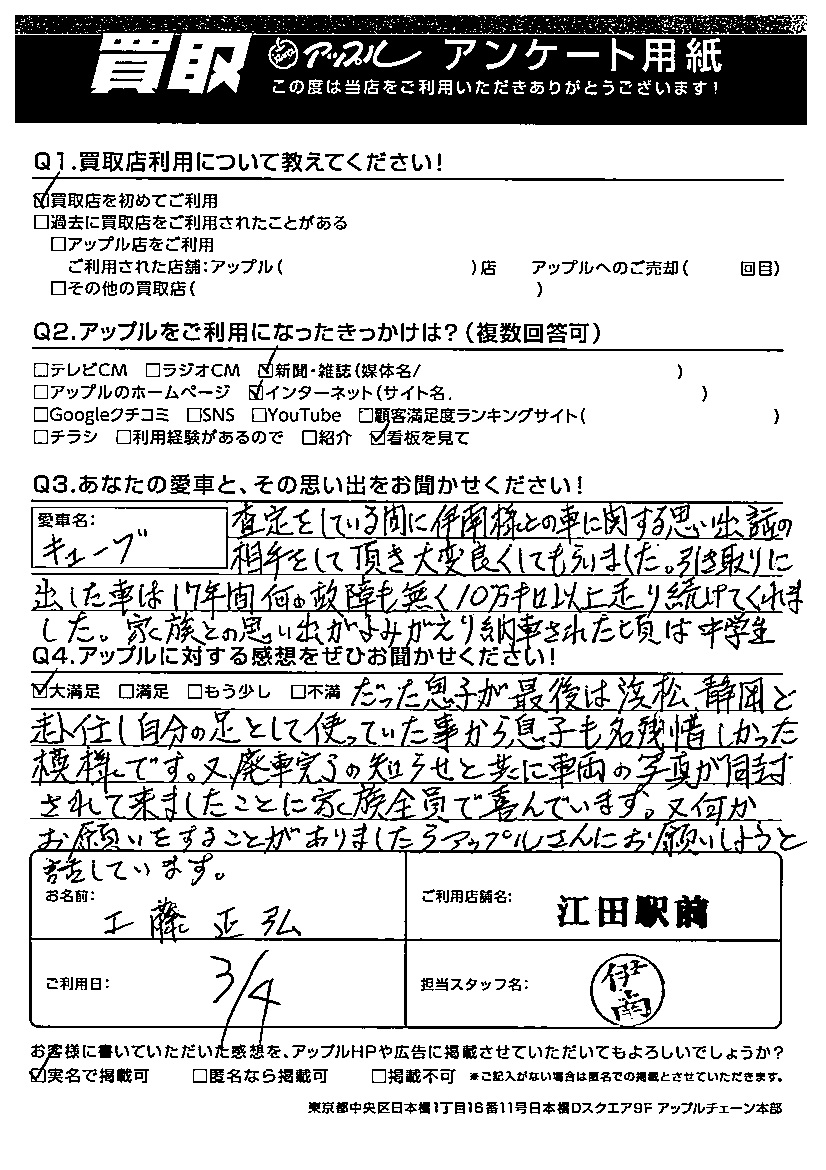 買取 アップル アンケート用紙
この度は当店をご利用いただきありがとうございます!
Q1.買取店利用について教えてください!
☑買取店を初めてご利用
□過去に買取店をご利用されたことがある
□アップル店をご利用
ご利用された店舗:アップル( )店 アップルへのご売却( 回目)
□その他の買取店( )
Q2.アップルをご利用になったきっかけは?(複数回答可)
□テレビCM □ラジオCM ☑新聞・雑誌(媒体名/ )
□アップルのホームページ ☑インターネット(サイト名. )
□Googleクチコミ □SNS □YouTube □顧客満足度ランキングサイト( )
□チラシ □利用経験があるので □紹介 ☑看板を見て
Q3.あなたの愛車と、その思い出をお聞かせください!
愛車名:
キューブ
査定をしている間に伊南様との車に関する思い出話の
相手をして頂き大変良くしてもらいました。引き取りに
出した車は17年間何の故障も無く10万キロ以上走り続けてくれま
した。家族との思い出がよみがえり納車された頃は中学生
Q4.アップルに対する感想をぜひお聞かせください!
☑大満足 □満足 □もう少し □不満 だった息子が最後は浜松、静岡と
赴任し自分の足として使っていた事から息子も名残惜しかった
模様です。又、廃車完了の知らせと共に車両の写真が同封
されて来ましたことに家族全員で喜んでいます。又何か
お願いをすることがありましたらアップルさんにお願いしようと
話しています。
お名前:
工藤 正弘
ご利用店舗名:
江田駅前
ご利用日:
3/4
担当スタッフ名:
伊南
お客様に書いていただいた感想を、アップルHPや広告に掲載させていただいてもよろしいでしょうか?
☑実名で掲載可 □匿名なら掲載可 □掲載不可 ※ご記入がない場合は匿名での掲載とさせていただきます。
東京都中央区日本橋1丁目16番11号日本橋Dスクエア9F アップルチェーン本部